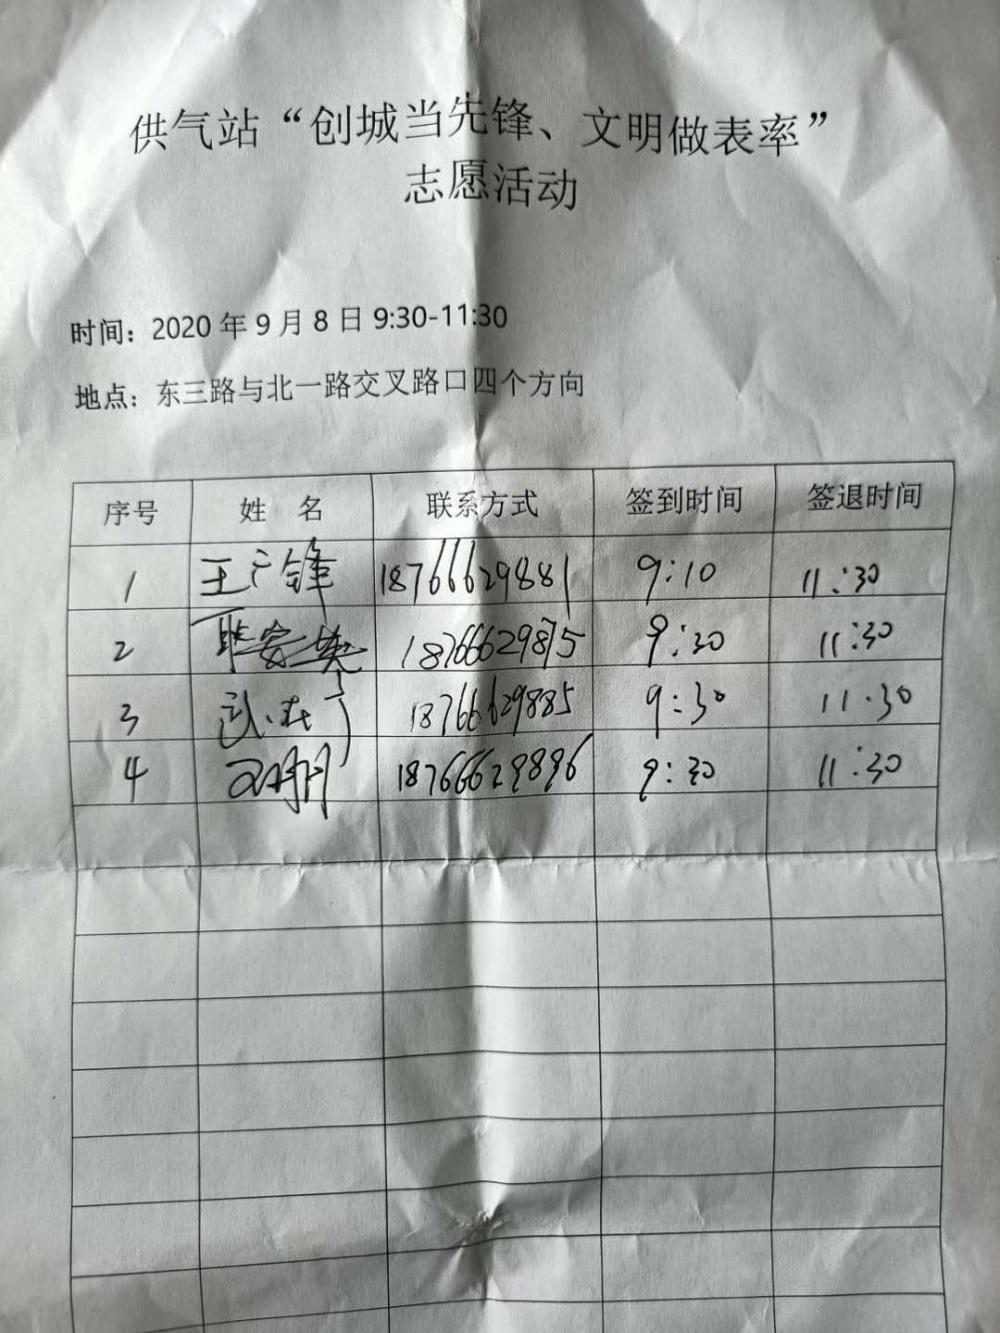 供气站“创城当先锋、文明做表率”
志愿活动
时间：2020年9月8日9:30-11:30
地点：东三路与北一路交叉路口四个方向
序号 姓 名 联系方式 签到时间 签退时间
1 王广锋 18766629881 9:10 11:30
2 18766629875 9:30 11:30
3 18766629885 9:30 11·30
4 18766629896 9:30 11:30